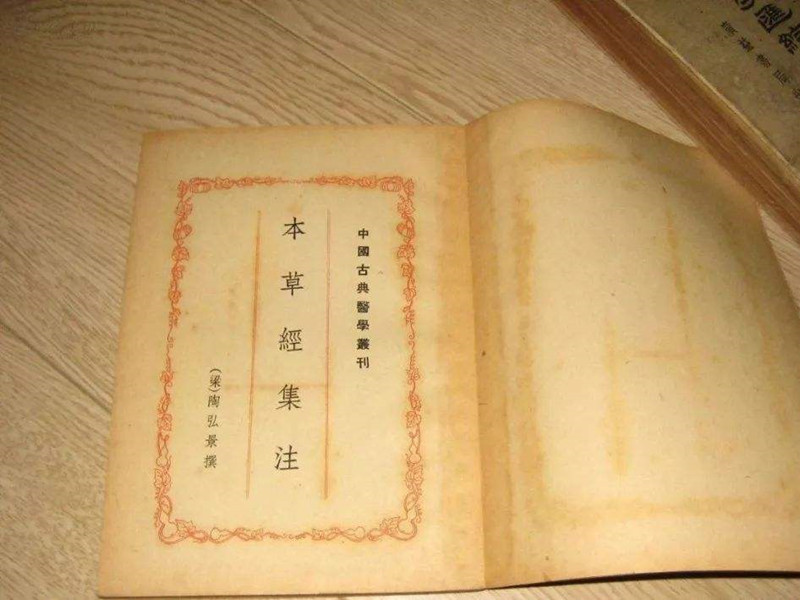 中國古典醫學叢刊
本草經集注
(梁)陶弘景撰